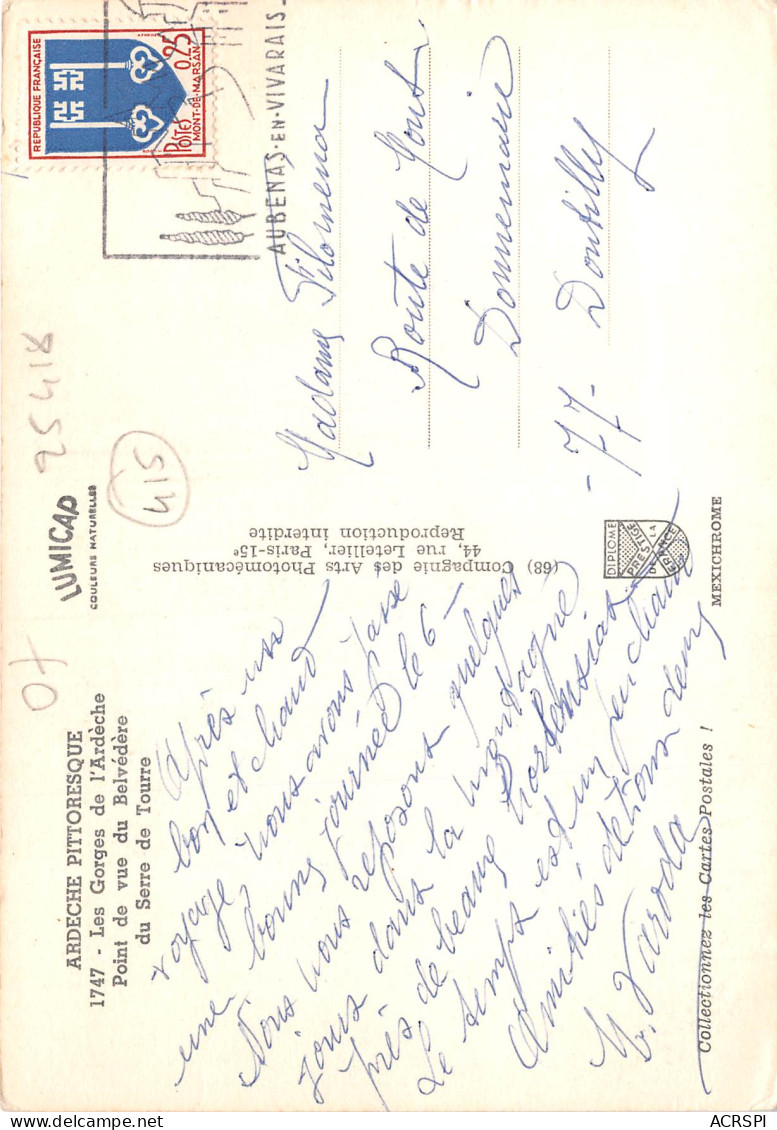 ARDECHE PITTORESQUE
1747 - Les Gorges de l'Ardèche
Point de vue du Belvédère
du Serre de Tourre
Après un
bon et chaud
voyage nous avons passé
une bonne journée le 6 -
Nous nous reposons quelques
jours dans la montagne
près de beaux hortensias
Le temps est un peu chaud
Amitiés de tous deux
M. Varoda
Collectionnez les Cartes Postales !
LUMICAP
COULEURS NATURELLES
07
25 418
415
(68) Compagnie des Arts Photomécaniques
44, rue Letellier, Paris-15e
Reproduction interdite
DIPLOME
PRESTIGE
DE LA
FRANCE
MEXICHROME
REPUBLIQUE FRANÇAISE
0,25
POSTES
MONT-DE-MARSAN
AUBENAS-EN-VIVARAIS
Madame Filomena
Route de Gout
Donnemarie
-77- Dontilly
ACRSPI